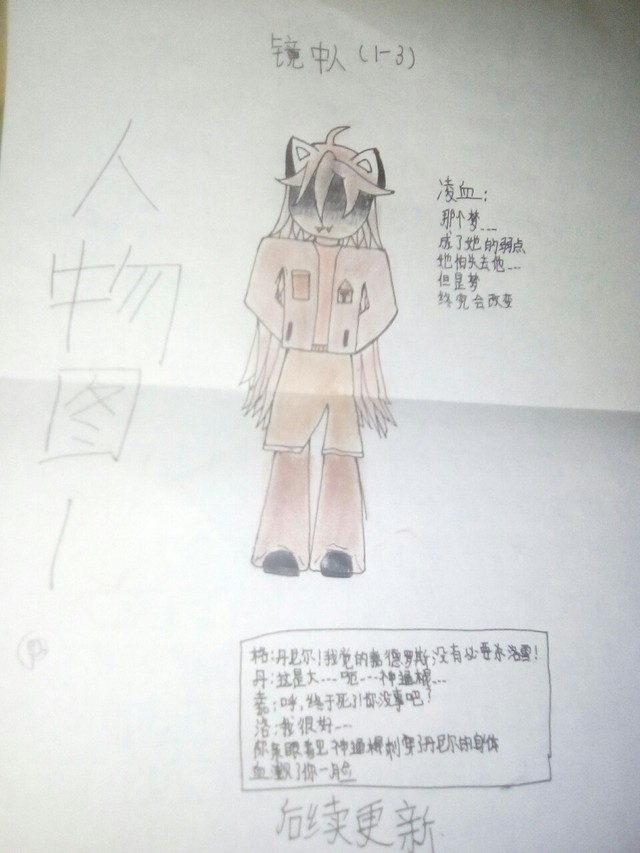 镜中人(1-3)
人物图1
凌血:
那个梦……
成了她的弱点
她怕失去他……
但是梦
终究会改变
格:丹尼尔!我觉的塞德罗斯没有必要杀洛雪!
丹:这是大……呃……神逼棍……
塞:呼,终于死了!你没事吧?
洛:我很好……
你亲眼看见神逼棍刺穿了丹尼尔的身体
血溅了你一脸
后续更新